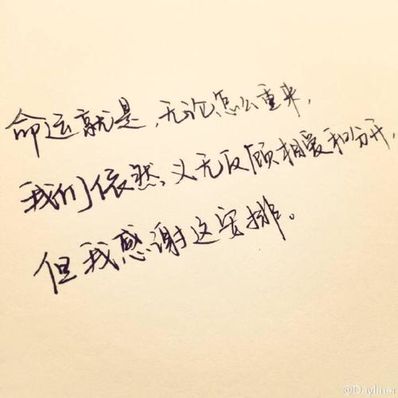 命运就是,无论怎么重来,
我们依然义无反顾相爱和分开,
但我感谢这安排。